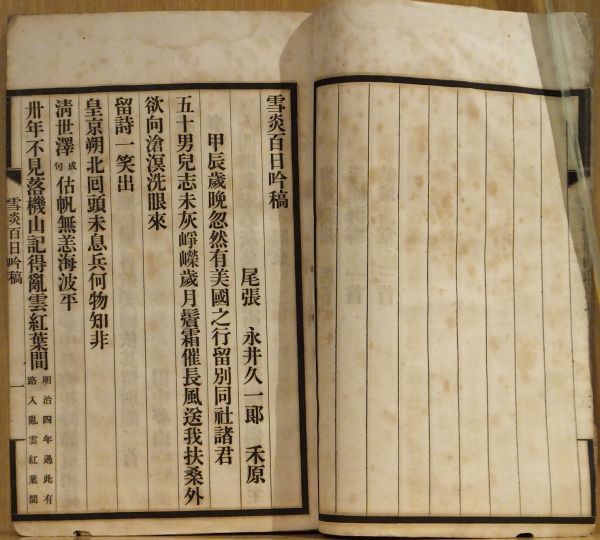 雪炎百日吟稿
尾張 永井久一郎 禾原
甲辰歲晚忽然有美國之行留別同社諸君
五十男兒志未灰崢嶸歲月鬢霜催長風送我扶桑外
欲向滄溟洗眼來
留詩一笑出
皇京朔北回頭未息兵何物知非
淸世澤成句估帆無恙海波平
卅年不見落機山記得亂雲紅葉間明治四年過此有路入亂雲紅葉間
雪炎百日吟稿
一